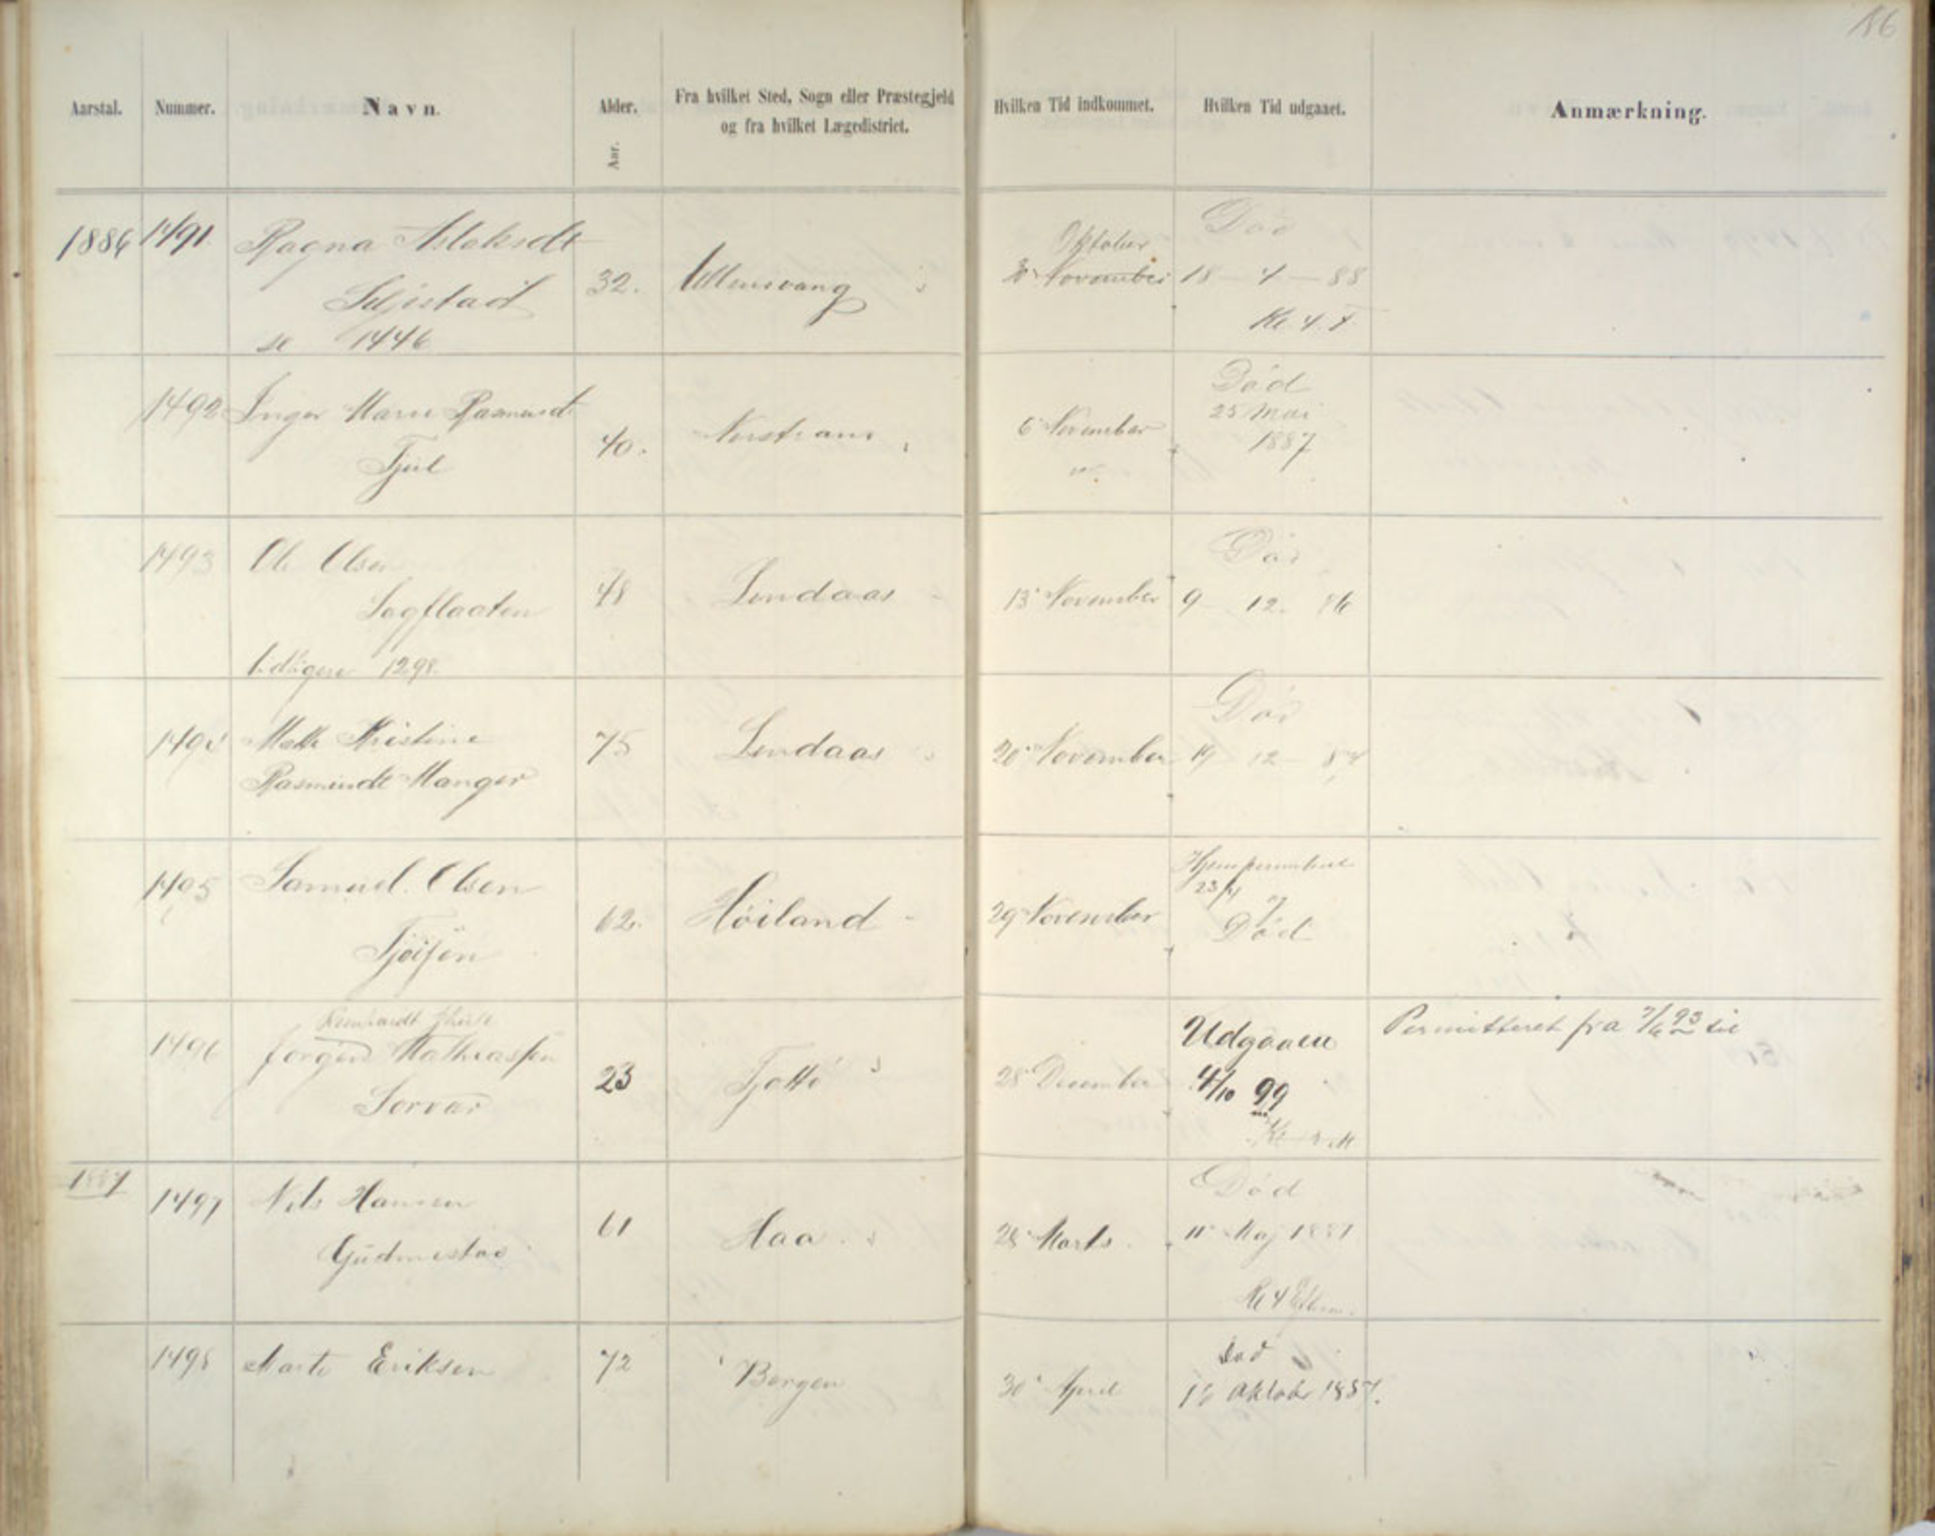 186
Aarstal.
Nummer.
Navn.
Alder.
Aar.
Fra hvilket Sted, Sogn eller Præstegjeld
og fra hvilket Lægedistrict.
Hvilken Tid indkommet.
Hvilken Tid udgaaet.
Anmærkning.
1886 1491. Ragna Aslaksdt
Seljestad
se 1446
32. Ullensvang
Oktober
30 November
Død
18 - 4 - 88
Kl. 4. F.
1492 Inger Marie Rasmusdt
40. Nerstrand
6 November
Død
25 Mai
1887
1493 Ole Olsen
Sagflaaten
tidligere 1298.
48 Lindaas
13 November
Død
9 12. 86
Kristine
Rasmusdt Manger
75 Lindaas
20 November
Død
19 - 12 -
1495 Samuel Olsen
62. Høiland
29 November
23/4
Død
1496
Jørgen Mathiassen
Sorvær
23 Tjøttø
28 December
Udgaaen
4/10 99
Permitteret fra 93 til
1887 1497 Nils Hansen
Gudmestad
61 Haa.
28 Marts.
Død
11 Maj 1887
Kl 4 Efterm.
1498 Marte Eriksen
72 Bergen
30 April
Død
Oktober 1887.